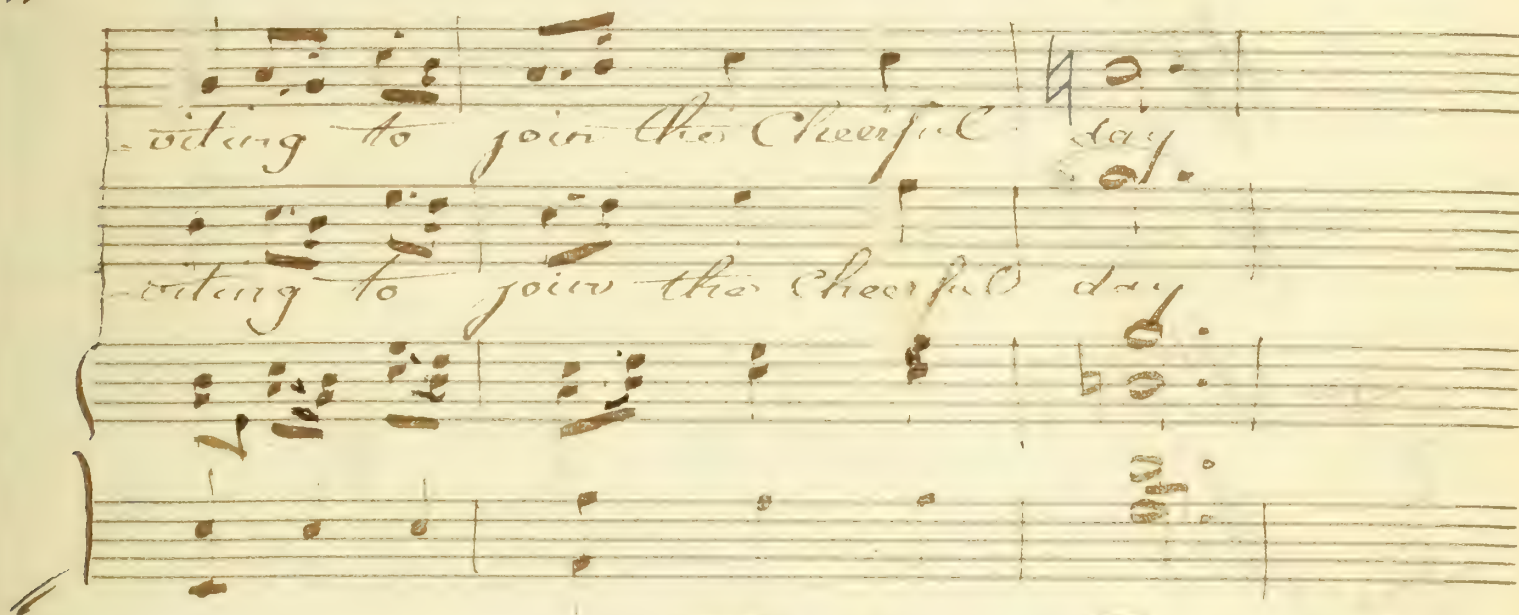 -viting to join the Cheerful day
-viting to join the Cheerful day